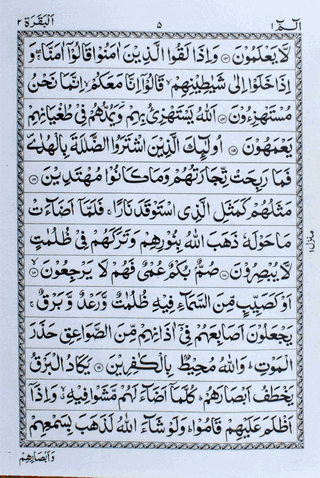 الٓمّٓ ١ ٥ اَلْبَقَرَة ٢
لَّا يَعْلَمُوْنَ ﴿١٣﴾ وَاِذَا لَقُوا الَّذِيْنَ اٰمَنُوْا قَالُوْٓا اٰمَنَّا ۖ وَ
اِذَا خَلَوْا اِلٰى شَيٰطِيْنِهِمْ ۙ قَالُوْٓا اِنَّا مَعَكُمْ ۙ اِنَّمَا نَحْنُ
مُسْتَهْزِءُوْنَ ﴿١٤﴾ اَللّٰهُ يَسْتَهْزِئُ بِهِمْ وَيَمُدُّهُمْ فِيْ طُغْيَانِهِمْ
يَعْمَهُوْنَ ﴿١٥﴾ اُولٰٓئِكَ الَّذِيْنَ اشْتَرَوُا الضَّلٰلَةَ بِالْهُدٰى ۪
فَمَا رَبِحَتْ تِّجَارَتُهُمْ وَمَا كَانُوْا مُهْتَدِيْنَ ﴿١٦﴾
مَثَلُهُمْ كَمَثَلِ الَّذِى اسْتَوْقَدَ نَارًا ۚ فَلَمَّآ اَضَآءَتْ
مَا حَوْلَهٗ ذَهَبَ اللّٰهُ بِنُوْرِهِمْ وَتَرَكَهُمْ فِيْ ظُلُمٰتٍ
لَّا يُبْصِرُوْنَ ﴿١٧﴾ صُمٌّۢ بُكْمٌ عُمْيٌ فَهُمْ لَا يَرْجِعُوْنَ ﴿١٨﴾
اَوْ كَصَيِّبٍ مِّنَ السَّمَآءِ فِيْهِ ظُلُمٰتٌ وَّرَعْدٌ وَّبَرْقٌ ۚ
يَجْعَلُوْنَ اَصَابِعَهُمْ فِيْٓ اٰذَانِهِمْ مِّنَ الصَّوَاعِقِ حَذَرَ
الْمَوْتِ ؕ وَاللّٰهُ مُحِيْطٌۢ بِالْكٰفِرِيْنَ ﴿١٩﴾ يَكَادُ الْبَرْقُ
يَخْطَفُ اَبْصَارَهُمْ ؕ كُلَّمَآ اَضَآءَ لَهُمْ مَّشَوْا فِيْهِ ۙ وَاِذَآ
اَظْلَمَ عَلَيْهِمْ قَامُوْا ؕ وَلَوْ شَآءَ اللّٰهُ لَذَهَبَ بِسَمْعِهِمْ
وَاَبْصَارِهِمْ
منزل ١